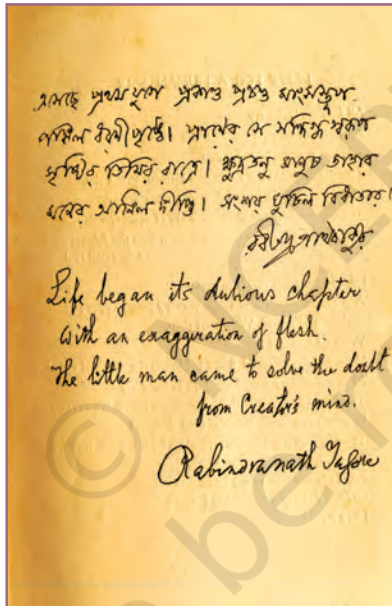 এসেছে প্রথম যুগে প্রকাণ্ড প্রচণ্ড মাংসস্তূপ
পঙ্কিল ধরণীপৃষ্ঠে। প্রাণের সে সন্দিগ্ধ স্বরূপ
সৃষ্টির তিমির রাত্রে। ক্ষুদ্রতনু মানুষ তাহার
মনের আনিল দীপ্তি। সংশয় ঘুচিল বিধাতার।
রবীন্দ্রনাথ ঠাকুর
Life began its dubious chapter
with an exaggeration of flesh.
The little man came to solve the doubt
from Creator's mind.
Rabindranath Tagore